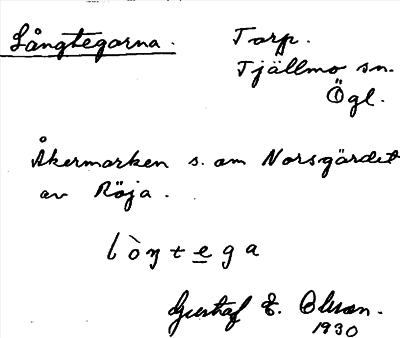 Långtegarna.
Torp.
Tjällmo sn.
Ögl.
Åkermarken s. om Norsgärdet
av Röja.
lòŋtega
Gustaf E. Olsson.
1930